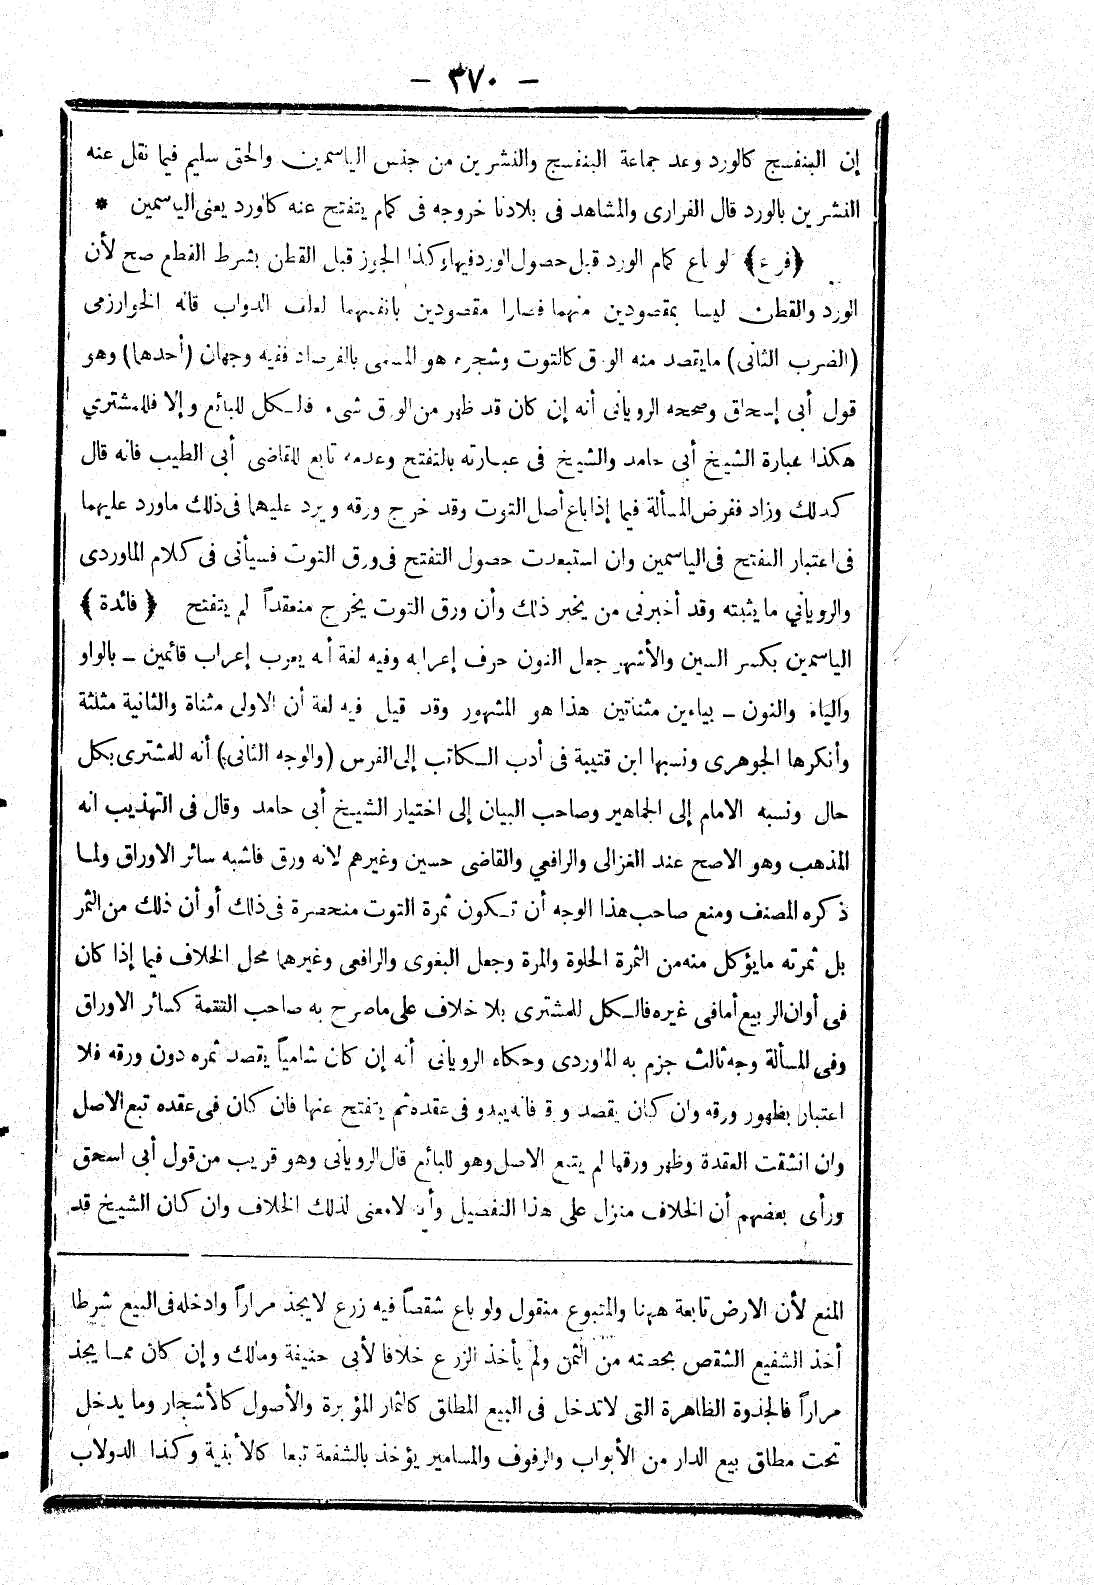 — ٣٧٠ —
إن البنفسج كالورد وعد جماعة البنفسج والنشرين من جنس الياسمين والحق سليم فيما نقل عنه
النشرين بالورد قال الفزارى والمشاهد فى بلادنا خروجه فى كمام يتفتح عنه كالورد يعنى الياسمين *
﴿فرع﴾ لو باع كمام الورد قبل حصول الورد فيها وكذا الجوز قبل القطن بشرط القطع صح لأن
الورد والقطن ليسا بمقصودين منهما فصارا مقصودين بانفسهما لعلف الدواب قاله الخوارزمى
(الضرب الثانى) ما يقصد منه الورق كالتوت وشجره هو المسمى بالفرصاد ففيه وجهان (أحدها) وهو
قول أبى إسحاق وصححه الرويانى أنه إن كان قد ظهر من الورق شىء فالكل للبائع وإلا فللمشترى
هكذا عبارة الشيخ أبى حامد والشيخ فى عبارته بالتفتح وعدمه تابع للقاضى أبى الطيب فانه قال
كذلك وزاد ففرض المسألة فيما إذا باع أصل التوت وقد خرج ورقه ويرد عليهما فى ذلك ماورد عليهما
فى اعتبار التفتح فى الياسمين وان استبعدت حصول التفتح فى ورق التوت فسيأتى فى كلام الماوردى
والرويانى ما يثبته وقد أخبرنى من يخبر ذلك وأن ورق التوت يخرج منعقداً لم يتفتح ﴿فائدة﴾
الياسمين بكسر السين والأشهر جعل النون حرف إعرابه وفيه لغة أنه يعرب إعراب قائمين – بالواو
والياء والنون – بياءين مثناتين هذا هو المشهور وقد قيل فيه لغة أن الاولى مثناة والثانية مثلثة
وأنكرها الجوهرى ونسبها ابن قتيبة فى أدب الكاتب إلى الفرس (والوجه الثانى) أنه للمشترى بكل
حال ونسبه الامام إلى الجماهير وصاحب البيان إلى اختيار الشيخ أبى حامد وقال فى التهذيب انه
المذهب وهو الاصح عند الغزالى والرافعي والقاضى حسين وغيرهم لانه ورق فاشبه سائر الاوراق ولما
ذكره المصنف ومنع صاحب هذا الوجه أن تكون ثمرة التوت منحصرة فى ذلك أو أن ذلك من الثمر
بل ثمرته ما يؤكل منه من الثمرة الحلوة والمرة وجعل البغوى والرافعى وغيرهما محل الخلاف فيما إذا كان
فى أوان الربيع أما فى غيره فالكل للمشترى بلا خلاف على ما صرح به صاحب التتمة كسائر الاوراق
وفى المسألة وجه ثالث جزم به الماوردى وحكاه الرويانى أنه إن كان شامياً يقصد ثمره دون ورقه فلا
اعتبار بظهور ورقه وان كان يقصد ورقه فانه يبدو فى عقده ثم يتفتح عنها فان كان فى عقده تبع الاصل
وان انشقت العقدة وظهر ورقها لم يتبع الاصل وهو للبائع قال الرويانى وهو قريب من قول أبى اسحق
ورأى بعضهم أن الخلاف منزل على هذا التفصيل وأنه لا معنى لذلك الخلاف وان كان الشيخ قد
المنع لأن الارض تابعة ههنا والمتبوع منقول ولو باع شقصاً فيه زرع لا يجذ مراراً وادخله فى البيع شرطا
أخذ الشفيع الشقص بحصته من الثمن ولم يأخذ الزرع خلافا لأبى حنيفة ومالك وإن كان مما يجذ
مراراً فالجذوة الظاهرة التى لا تدخل فى البيع المطلق كالثمار المؤبرة والأصول كالأشجار وما يدخل
تحت مطلق بيع الدار من الأبواب والرفوف والمسامير يؤخذ بالشفعة تبعا كالأبنية وكذا الدولاب